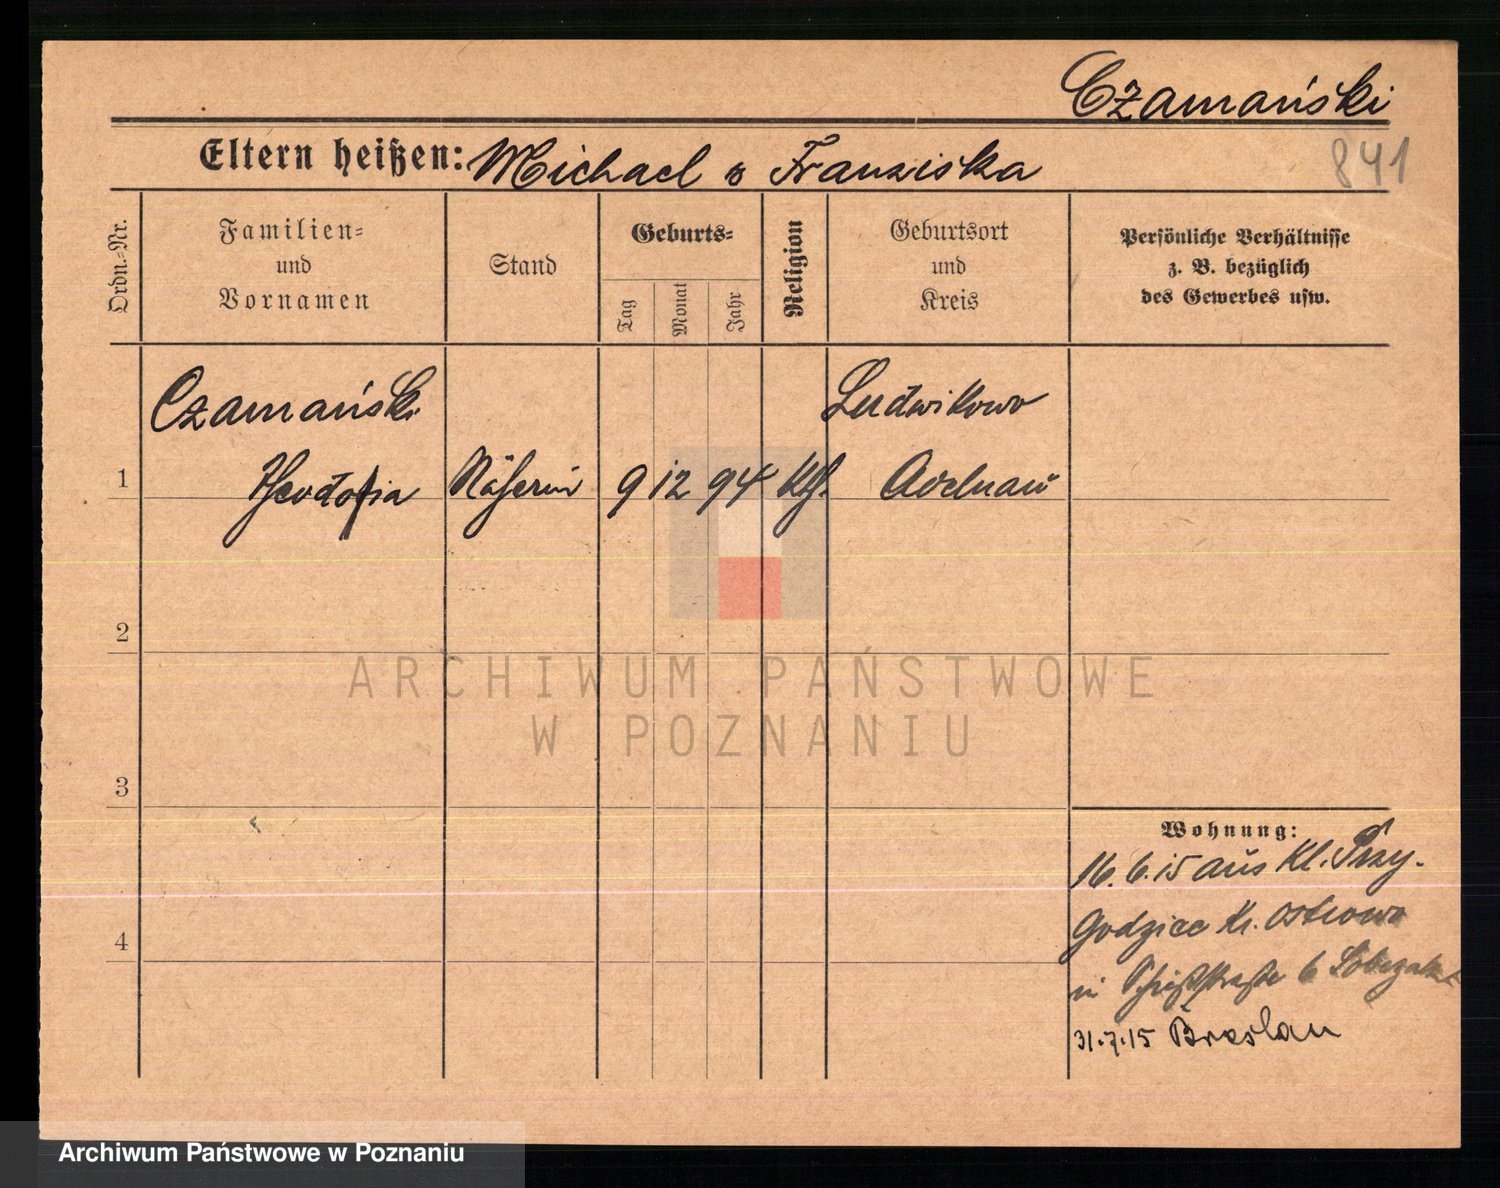 Czamański
Eltern heißen: Michael u Franziska
841
Ordn.=Nr.
Familien=
und
Vornamen
Stand
Geburts=
Tag
Monat
Jahr
Religion
Geburtsort
und
Kreis
Persönliche Verhältnisse
z. B. bezüglich
des Gewerbes usw.
Czamański Ludwikowo
1 Näherin 9 12 94 kth. Adelnau
2
ARCHIWUM PAŃSTWOWE
W POZNANIU
3
Wohnung:
16.6.15 aus Kl. Przy-
4 godzice Kr. Ostrowo
in 6
31.7.15 Breslau
Archiwum Państwowe w Poznaniu